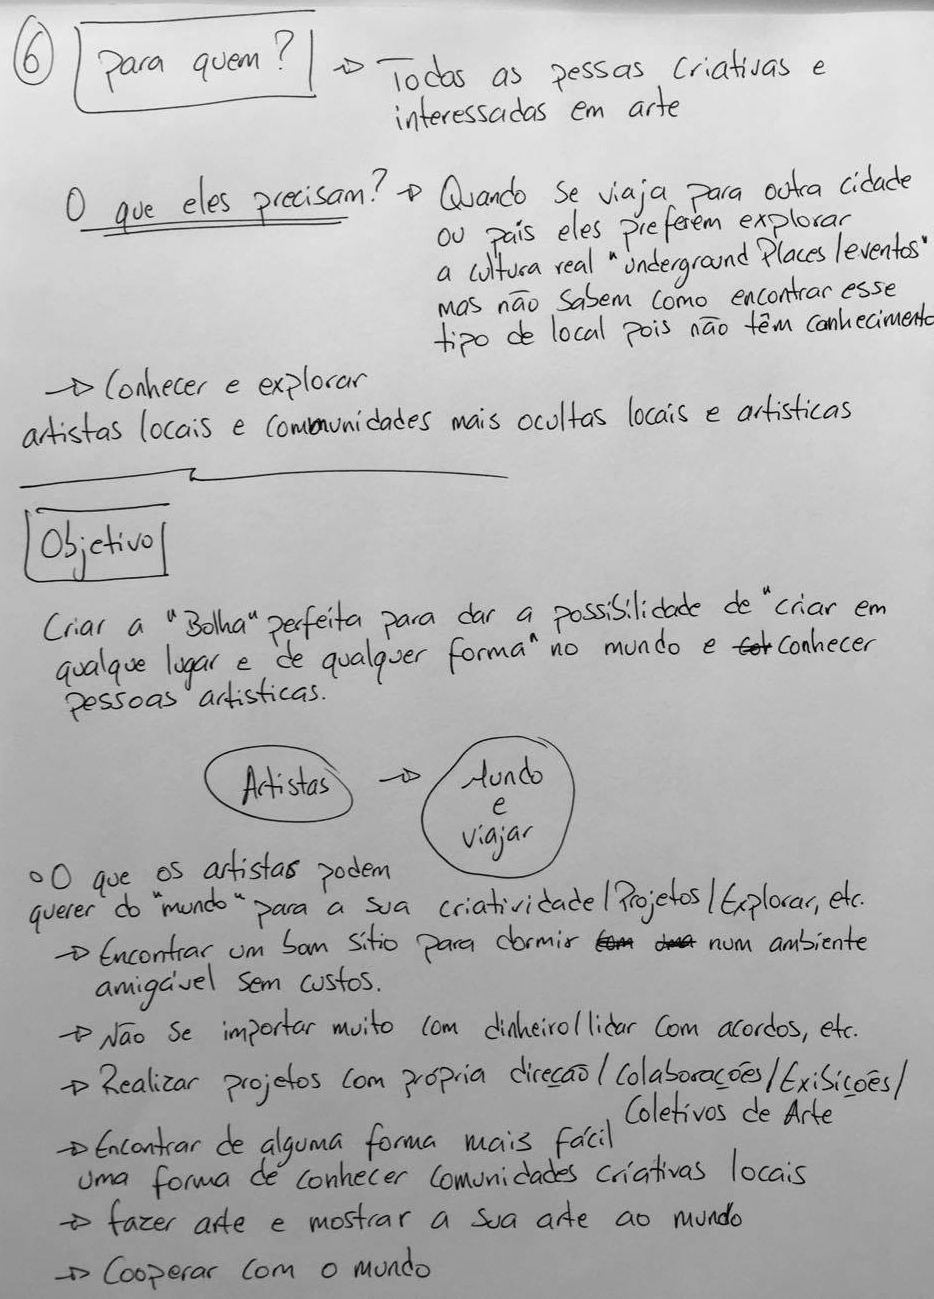 6 Para quem? → Todas as pessas criativas e
interessadas em arte
O que eles precisam? → Quando se viaja para outra cidade
ou país eles preferem explorar
a cultura real "underground Places/eventos"
mas não sabem como encontrar esse
tipo de local pois não têm conhecimento
→ Conhecer e explorar
artistas locais e communidades mais ocultas locais e artisticas
Objetivo
Criar a "Bolha" perfeita para dar a possibilidade de "criar em
qualque lugar e de qualquer forma" no mundo e conhecer
pessoas artisticas.
Artistas → Mundo
e
viajar
O que os artistas podem
querer do "mundo" para a sua criatividade/Projetos/Explorar, etc.
→ Encontrar um bom sítio para dormir num ambiente
amigável sem custos.
→ Não se importar muito com dinheiro/lidar com acordos, etc.
→ Realizar projetos com própria direcão/Colaboracões/Exibicões/
Coletivos de Arte
→ Encontrar de alguma forma mais fácil
uma forma de conhecer comunidades criativas locais
→ fazer arte e mostrar a sua arte ao mundo
→ Cooperar com o mundo